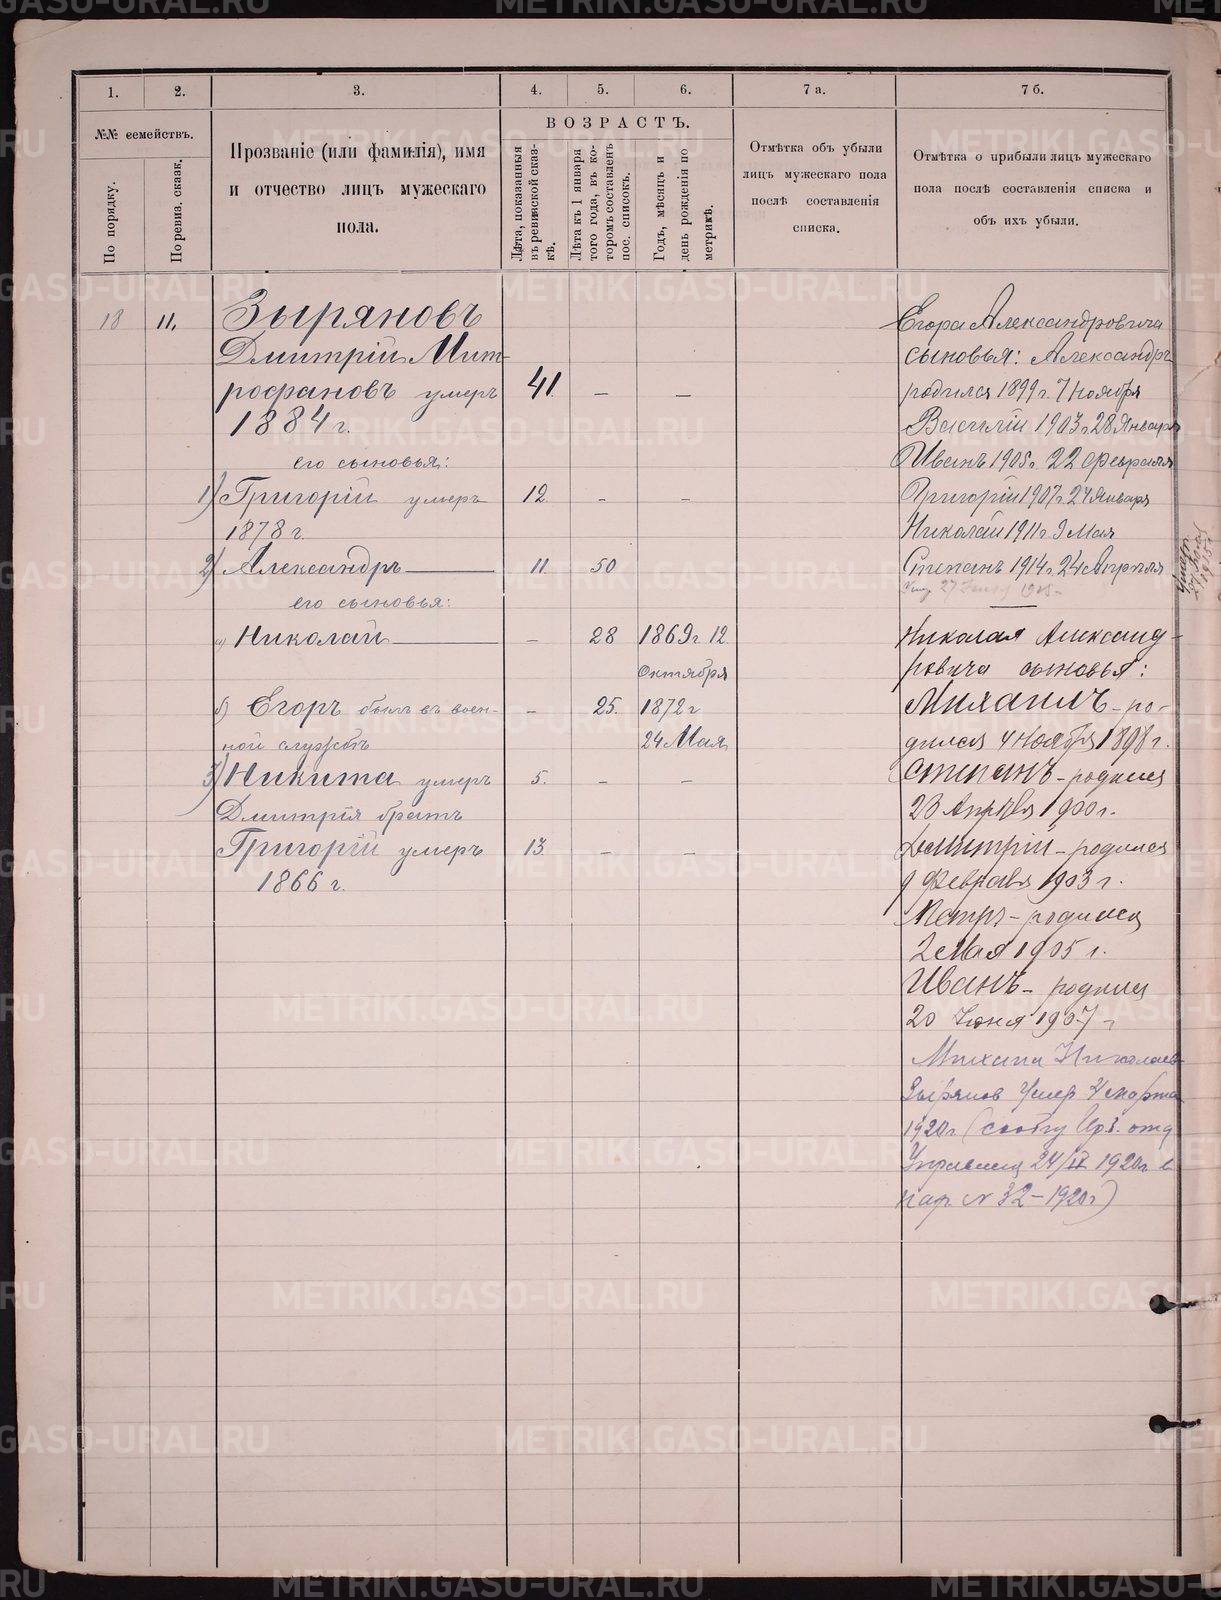 1.
2.
3.
4.
5.
6.
7 а.
7 б.
№№ семействъ.
По порядку.
По ревиз. сказк.
Прозваніе (или фамилія), имя
и отчество лицъ мужескаго
пола.
ВОЗРАСТЪ.
Лѣта, показанныя
въ ревизской сказ-
кѣ.
Лѣта къ 1 января
того года, въ ко-
торомъ составленъ
пос. списокъ.
Годъ, мѣсяцъ и
день рожденія по
метрикѣ.
Отмѣтка объ убыли
лицъ мужескаго пола
послѣ составленія
списка.
Отмѣтка о прибыли лицъ мужескаго
пола послѣ составленія списка и
объ ихъ убыли.
18 11. Зыряновъ
Дмитрій Мит-
рофановъ умеръ 41 — —
1884 г.
его сыновья:
1) Григорій умеръ 12. — —
1878 г.
2) Александръ 11 50
его сыновья:
а) Николай — 28 1869 г 12
октября
б) Егоръ былъ въ воен- — 25. 1872 г
ной службѣ 24 Мая
3) Никита умеръ 5. — —
Дмитрія братъ
Григорій умеръ 13 — —
1866 г.
Егора Александровича
сыновья: Александръ
родился 1899 г. 7 ноября
Василій 1903 г 28 Января
Иванъ 1905 г. 22 февраля
Григорій 1907 г 24 Января
Николай 1911 г. 9 Мая
Степанъ 1914 г. 24 Апрѣля
Николая Александ-
ровича сыновья:
Михаилъ - ро-
дился 4 Ноября 1898 г.
Степанъ - родился
23 Апрѣля 1900 г.
Дмитрій - родился
9 Февраля 1903 г.
Петръ - родился
2 Мая 1905 г.
Иванъ - родился
20 Іюня 1907 г
Михаил Николаев
Зырянов умер 4 марта
1920 г
Управлен 24/II 1920 г в
нар № 32 - 1920 г)
METRIKI.GASO-URAL.RU